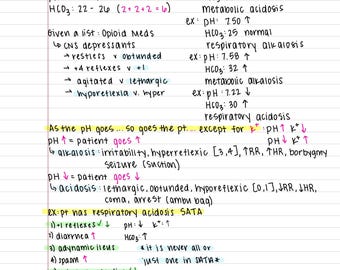 HCO3: 22 - 26 (2+2+2=6)
metabolic acidosis
ex: pH: 7.50 ↑
Given a list: Opioid Meds
HCO3: 25 normal
↳ CNS depressants
respiratory alkalosis
→ restless v obtunded
ex: pH: 7.58 ↑
→ +4 reflexes v +1
HCO3: 32 ↑
→ agitated v lethargic
metabolic alkalosis
→ hyporeflexia v hyper
ex: pH: 7.22 ↓
HCO3: 30 ↑
respiratory acidosis
As the pH goes... so goes the pt... except for K+: pH↑ K+↓
pH↑ = patient goes ↑ pH↓ K+↑
↳ alkalosis: irritability, hyperreflexic [3,4], ↑RR, ↑HR, borbygmy
seizure (suction)
pH↓ = patient goes ↓
↳ Acidosis: lethargic, obtunded, hyporeflexic [0,1], ↓RR, ↓HR,
coma, arrest (ambu bag)
ex: pt has respiratory acidosis SATA
1) +1 reflexes ✓ pH: ↓ K+: ↑
2) diarrhea ↑ HCO3: ↑
3) adynamic ileus *it is never all or
4) spasm ↑ just one in SATA*